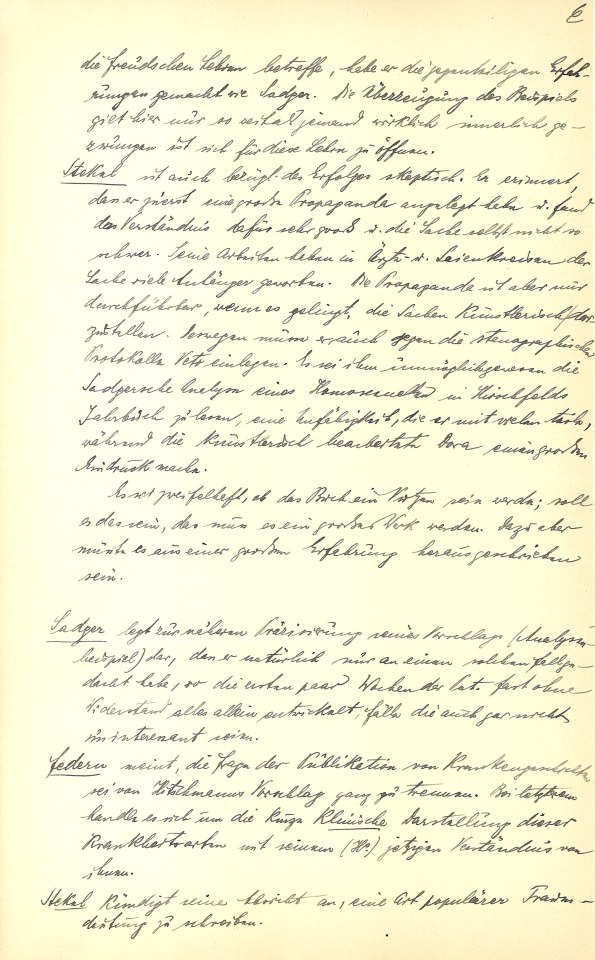 6
die Freudschen Lehren betreffe, habe er die gegenteiligen Erfah-
rungen gemacht wie Sadger. Die Überzeugung des Beispiels
gielt hier nur so weit als jemand wirklich innerlich ge-
zwungen ist sich für diese Lehren zu öffnen.
Stekel ist auch bezügl. des Erfolges skeptisch. Er erinnert,
dass er zuerst eine große Propaganda angelegt habe u. fand
das Verständnis dafür sehr groß u. die Sache selbst nicht so
schwer. Seine Arbeiten haben in Ärzte- u. Laienkreisen der
Sache viele Anhänger geworben. Die Propaganda ist aber nur
durchführbar, wenn es gelingt, die Sachen künstlerisch dar-
zustellen. Deswegen müsse er auch gegen die stenographischen
Protokolle Veto einlegen. Es sei ihm unmöglich gewesen die
Sadgersche Analyse eines Homosexuellen in Hirschfelds
Jahrbuch zu lesen, eine Unfähigkeit, die er mit vielen teile,
während die künstlerisch bearbeitete Dora einen großen
Eindruck mache.
Es sei zweifelhaft, ob das Buch ein Nutzen sein werde; soll
es das sein, das muss es ein großes Werk werden. Dazu aber
müsste es aus einer großen Erfahrung herausgeschrieben
sein.
Sadger legt zur näheren Präzisierung seines Vorschlags (Analysen-
beispiel) dar, dass er natürlich nur an einen solchen Fall ge-
dacht habe, wo die ersten paar Wochen der Pat. fast ohne
Widerstand alles allein entwickelt, Fälle die auch gar nicht
uninteressant seien.
Federn meint, die Frage der Publikation von Krankengeschichten
sei von Hitschmanns Vorschlag ganz zu trennen. Bei letzterem
handle es sich um die kurze klinische Darstellung dieser
Krankheitsarten mit seinem (Hs.) jetzigen Verständnis von
ihnen.
Stekel kündigt seine Absicht an, eine Art populärer Traum-
deutung zu schreiben.